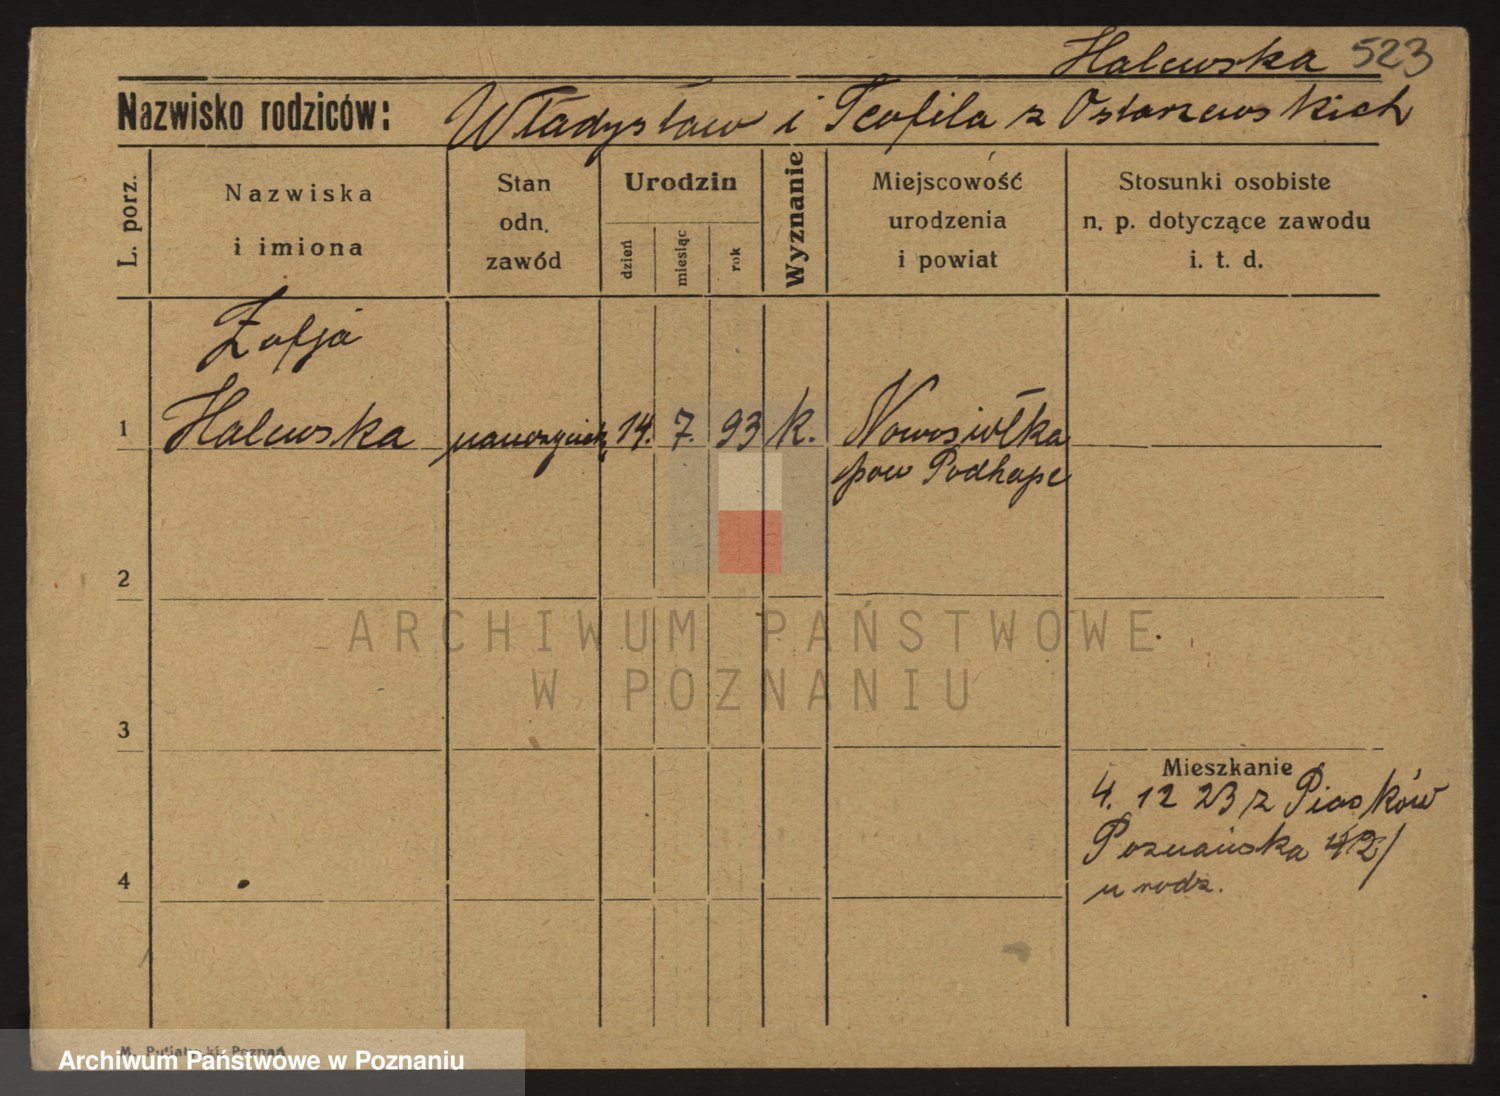 Halewska 523
Nazwisko rodziców: Władysław i Teofila z Ostarzewskich
L. porz.
Nazwiska
i imiona
Stan
odn.
zawód
Urodzin
dzień
miesiąc
rok
Wyznanie
Miejscowość
urodzenia
i powiat
Stosunki osobiste
n. p. dotyczące zawodu
i. t. d.
Zofja
1 Halewska 14. 7. 93 k. Nowosiółka
pow Podhajce
2
ARCHIWUM PAŃSTWOWE
W POZNANIU
3
Mieszkanie
4. 12 23 z Piasków
Poznańska 42/
4
u rodz.
M. Poznań
Archiwum Państwowe w Poznaniu